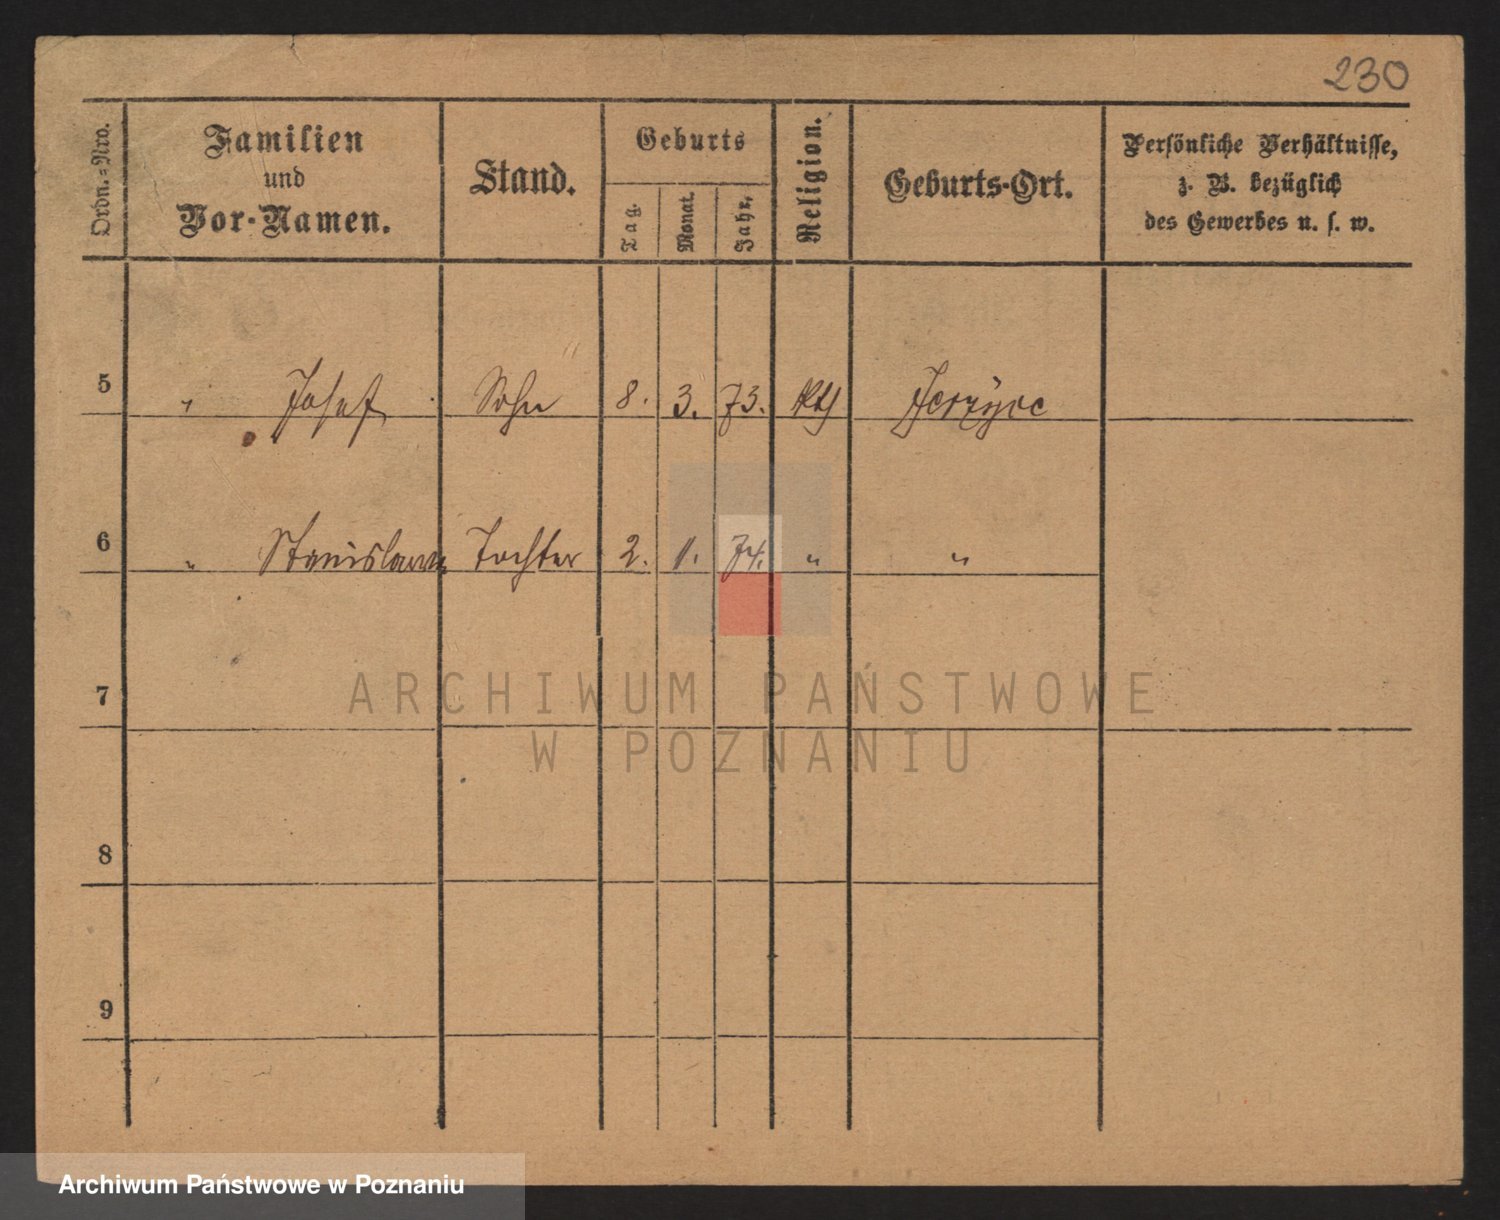 230
Ordn.-Nro.
Familien
und
Vor-Namen.
Stand.
Geburts
Tag.
Monat.
Jahr.
Religion.
Geburts-Ort.
Persönliche Verhältnisse,
z. B. bezüglich
des Gewerbes u. s. w.
5 " Josef Sohn 8. 3. 73. kth Jerzyce
6 " Stanislawa Tochter 2. 1. 74. " "
7
8
9
ARCHIWUM PAŃSTWOWE
W POZNANIU
Archiwum Państwowe w Poznaniu